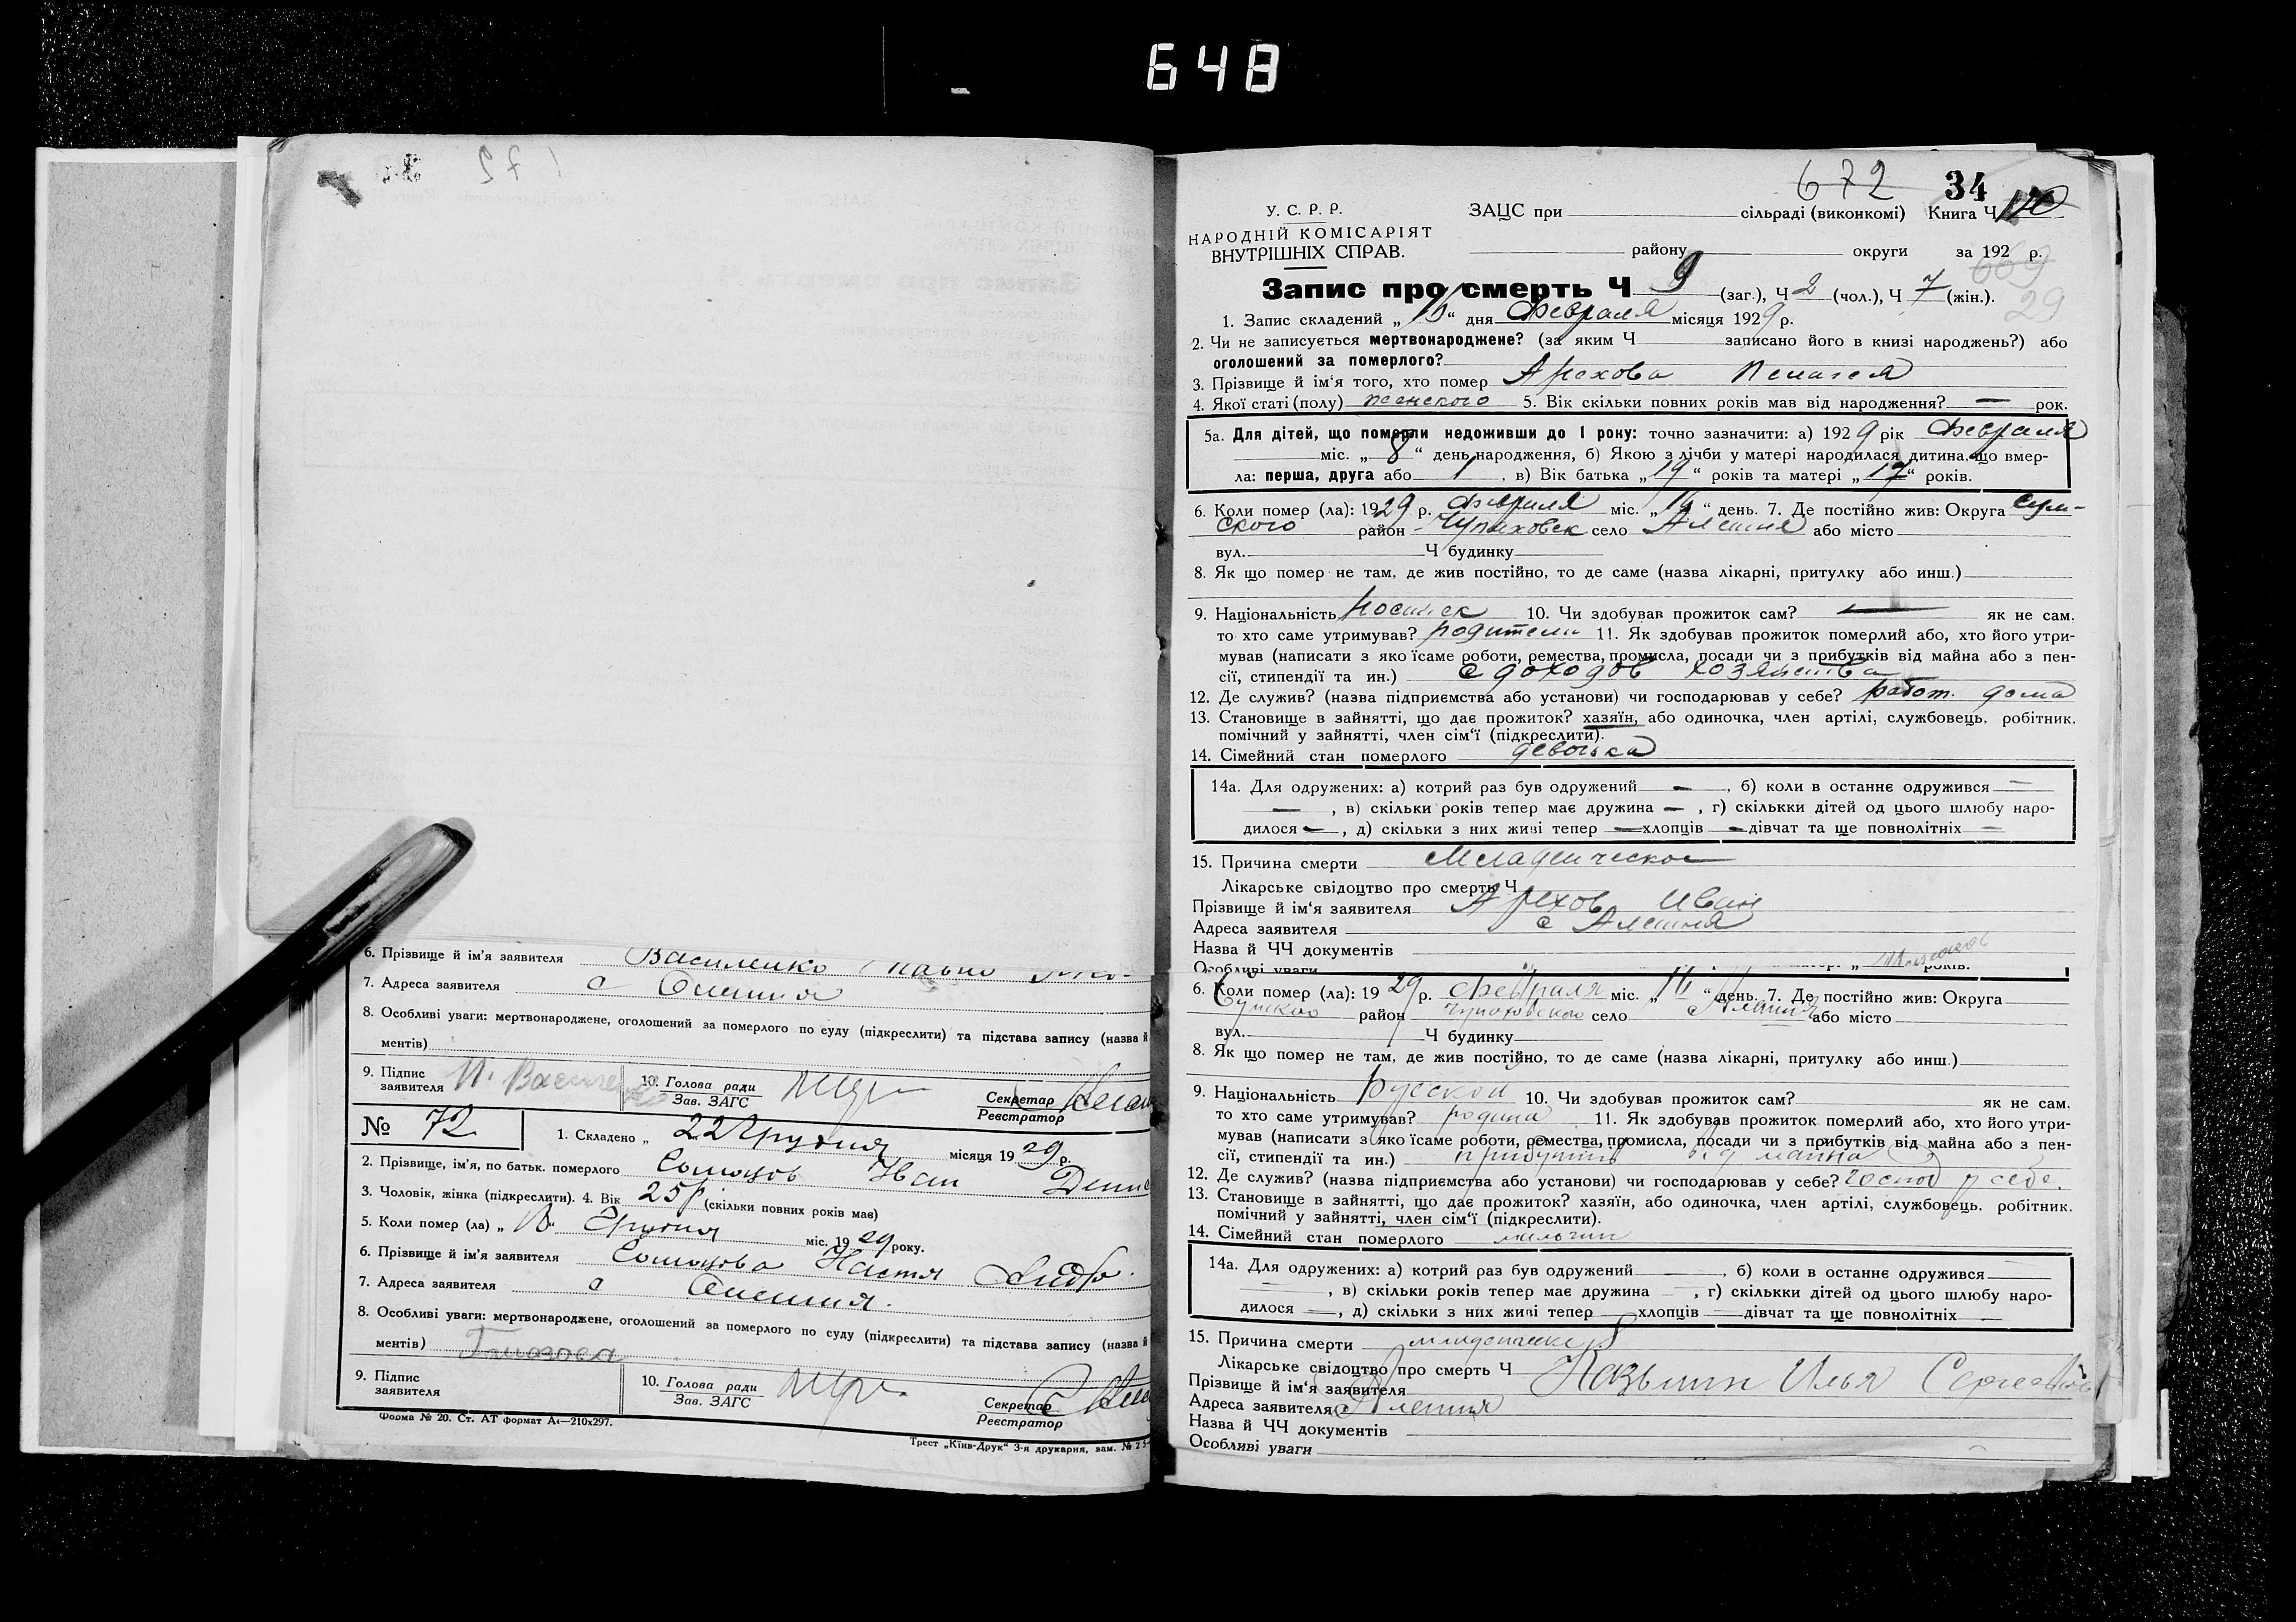 648
6. Прізвище й ім'я заявителя Василенко Павло
7. Адреса заявителя с Олешня
8. Особливі уваги: мертвонароджене, оголошений за померлого по суду (підкреслити) та підстава запису (назва й
ментів)
9. Підпис заявителя
10. Голова ради
Зав. ЗАГС
Секретар
Реєстратор
№ 72
1. Складено „ 22 Грудня місяця 1929 р.
2. Прізвище, ім'я, по батьк. померлого Іван
3. Чоловік, жінка (підкреслити). 4. Вік 25 р (скільки повних років має)
5. Коли помер (ла) „ Грудня міс. 1929 року.
6. Прізвище й ім'я заявителя Настя
7. Адреса заявителя с Олешня.
8. Особливі уваги: мертвонароджене, оголошений за померлого по суду (підкреслити) та підстава запису (назва й
ментів)
9. Підпис заявителя
10. Голова ради
Зав. ЗАГС
Секретар
Реєстратор
Форма № 20. Ст. АТ формат А4—210х297.
Трест „Київ-Друк“ 3-я друкарня, зам. №
672 34
У. С. Р. Р. ЗАЦС при сільраді (виконкомі) Книга Ч
НАРОДНІЙ КОМІСАРІЯТ
ВНУТРІШНІХ СПРАВ. району округи за 192 р.
669
29
Запис про смерть Ч 9 (заг.), Ч 2 (чол.), Ч 7 (жін.).
1. Запис складений „16“ дня Февраля місяця 1929 р.
2. Чи не записується мертвонароджене? (за яким Ч записано його в книзі народжень?) або
оголошений за померлого?
3. Прізвище й ім'я того, хто помер Арехова Пелагея
4. Якої статі (полу) женского 5. Вік скільки повних років мав від народження? — рок.
5а. Для дітей, що померли недоживши до 1 року: точно зазначити: а) 1929 рік Февраля
міс. „8“ день народження, б) Якою з лічби у матері народилася дитина, що вмер-
ла: перша, друга або 1, в) Вік батька „19“ років та матері „17“ років.
6. Коли помер (ла): 1929 р. Февраля міс. „16“ день. 7. Де постійно жив: Округа Сум-
ского район Чупаховск село Алешня або місто
вул. Ч будинку
8. Як що помер не там, де жив постійно, то де саме (назва лікарні, притулку або инш.)
9. Національність 10. Чи здобував прожиток сам? — як не сам.
то хто саме утримував? родители 11. Як здобував прожиток померлий або, хто його утри-
мував (написати з якої саме роботи, ремества, промисла, посади чи з прибутків від майна або з пен-
сії, стипендії та ин.) с доходов хозяйства
12. Де служив? (назва підприємства або установи) чи господарював у себе? работ. дома
13. Становище в зайнятті, що дає прожиток? хазяїн, або одиночка, член артілі, службовець, робітник.
помічний у зайнятті, член сім'ї (підкреслити).
14. Сімейний стан померлого девочка
14а. Для одружених: а) котрий раз був одружений —, б) коли в останнє одружився —
—, в) скільки років тепер має дружина —, г) скількки дітей од цього шлюбу наро-
дилося —, д) скільки з них живі тепер — хлопців — дівчат та ще повнолітніх —
15. Причина смерти Младенческое
Лікарське свідоцтво про смерть Ч
Прізвище й ім'я заявителя Арехов Иван
Адреса заявителя с Алешня
Назва й ЧЧ документів
Особливі уваги років.
6. Коли помер (ла): 1929 р. Февраля міс. „16“ день. 7. Де постійно жив: Округа
Сумского район Чупаховского село Алешня або місто
вул. Ч будинку
8. Як що помер не там, де жив постійно, то де саме (назва лікарні, притулку або инш.)
9. Національність Русский 10. Чи здобував прожиток сам? як не сам.
то хто саме утримував? родина 11. Як здобував прожиток померлий або, хто його утри-
мував (написати з якої саме роботи, ремества, промисла, посади чи з прибутків від майна або з пен-
сії, стипендії та ин.) прибутків від майна
12. Де служив? (назва підприємства або установи) чи господарював у себе? господ у себе.
13. Становище в зайнятті, що дає прожиток? хазяїн, або одиночка, член артілі, службовець, робітник.
помічний у зайнятті, член сім'ї (підкреслити).
14. Сімейний стан померлого
14а. Для одружених: а) котрий раз був одружений —, б) коли в останнє одружився
—, в) скільки років тепер має дружина —, г) скількки дітей од цього шлюбу наро-
дилося —, д) скільки з них живі тепер — хлопців — дівчат та ще повнолітніх —
15. Причина смерти
Лікарське свідоцтво про смерть Ч
Прізвище й ім'я заявителя Илья
Адреса заявителя с Алешня
Назва й ЧЧ документів
Особливі уваги